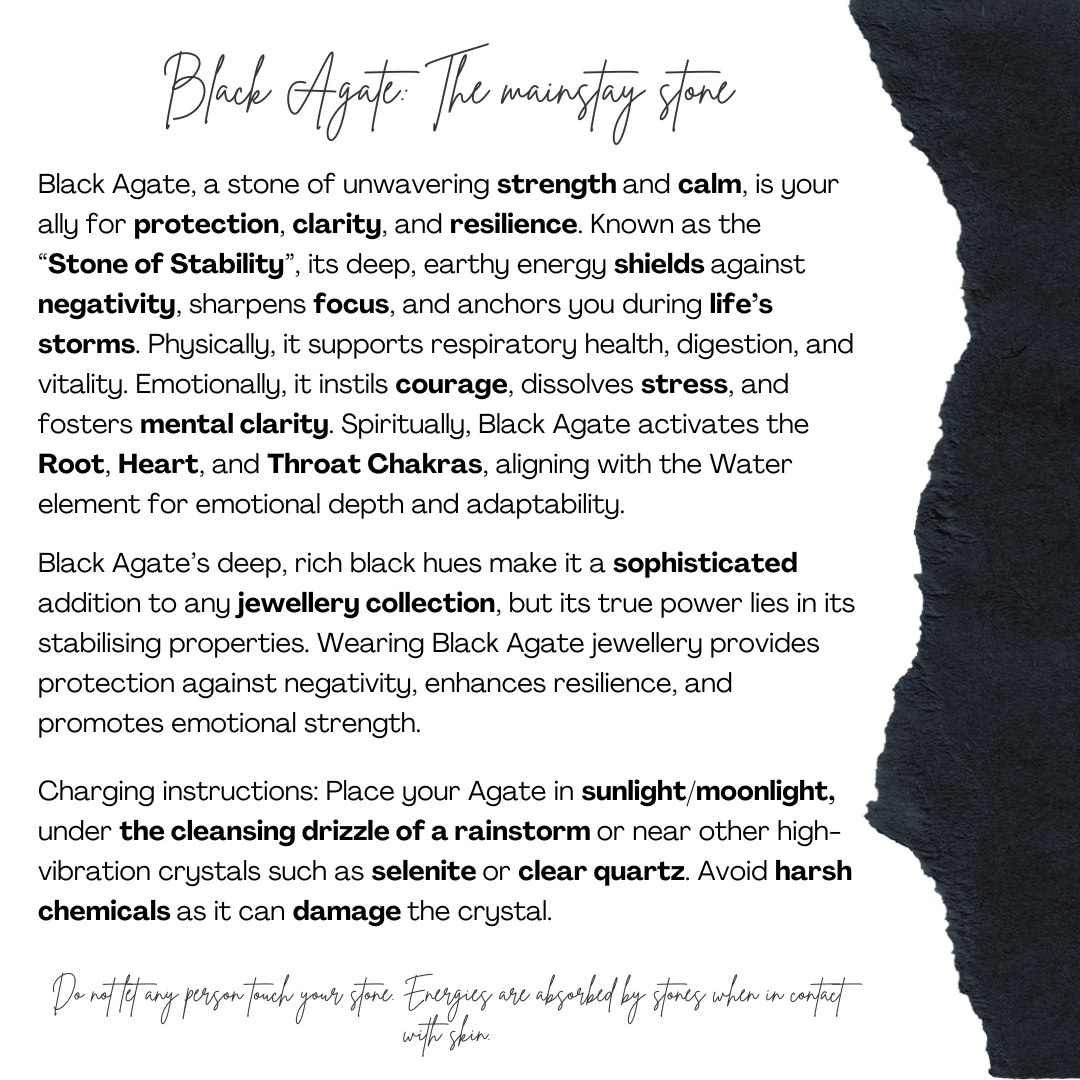 Black Agate: The mainstay stone
Black Agate, a stone of unwavering strength and calm, is your
ally for protection, clarity, and resilience. Known as the
“Stone of Stability”, its deep, earthy energy shields against
negativity, sharpens focus, and anchors you during life’s
storms. Physically, it supports respiratory health, digestion, and
vitality. Emotionally, it instils courage, dissolves stress, and
fosters mental clarity. Spiritually, Black Agate activates the
Root, Heart, and Throat Chakras, aligning with the Water
element for emotional depth and adaptability.
Black Agate’s deep, rich black hues make it a sophisticated
addition to any jewellery collection, but its true power lies in its
stabilising properties. Wearing Black Agate jewellery provides
protection against negativity, enhances resilience, and
promotes emotional strength.
Charging instructions: Place your Agate in sunlight/moonlight,
under the cleansing drizzle of a rainstorm or near other high-
vibration crystals such as selenite or clear quartz. Avoid harsh
chemicals as it can damage the crystal.
Do not let any person touch your stone. Energies are absorbed by stones when in contact
with skin.